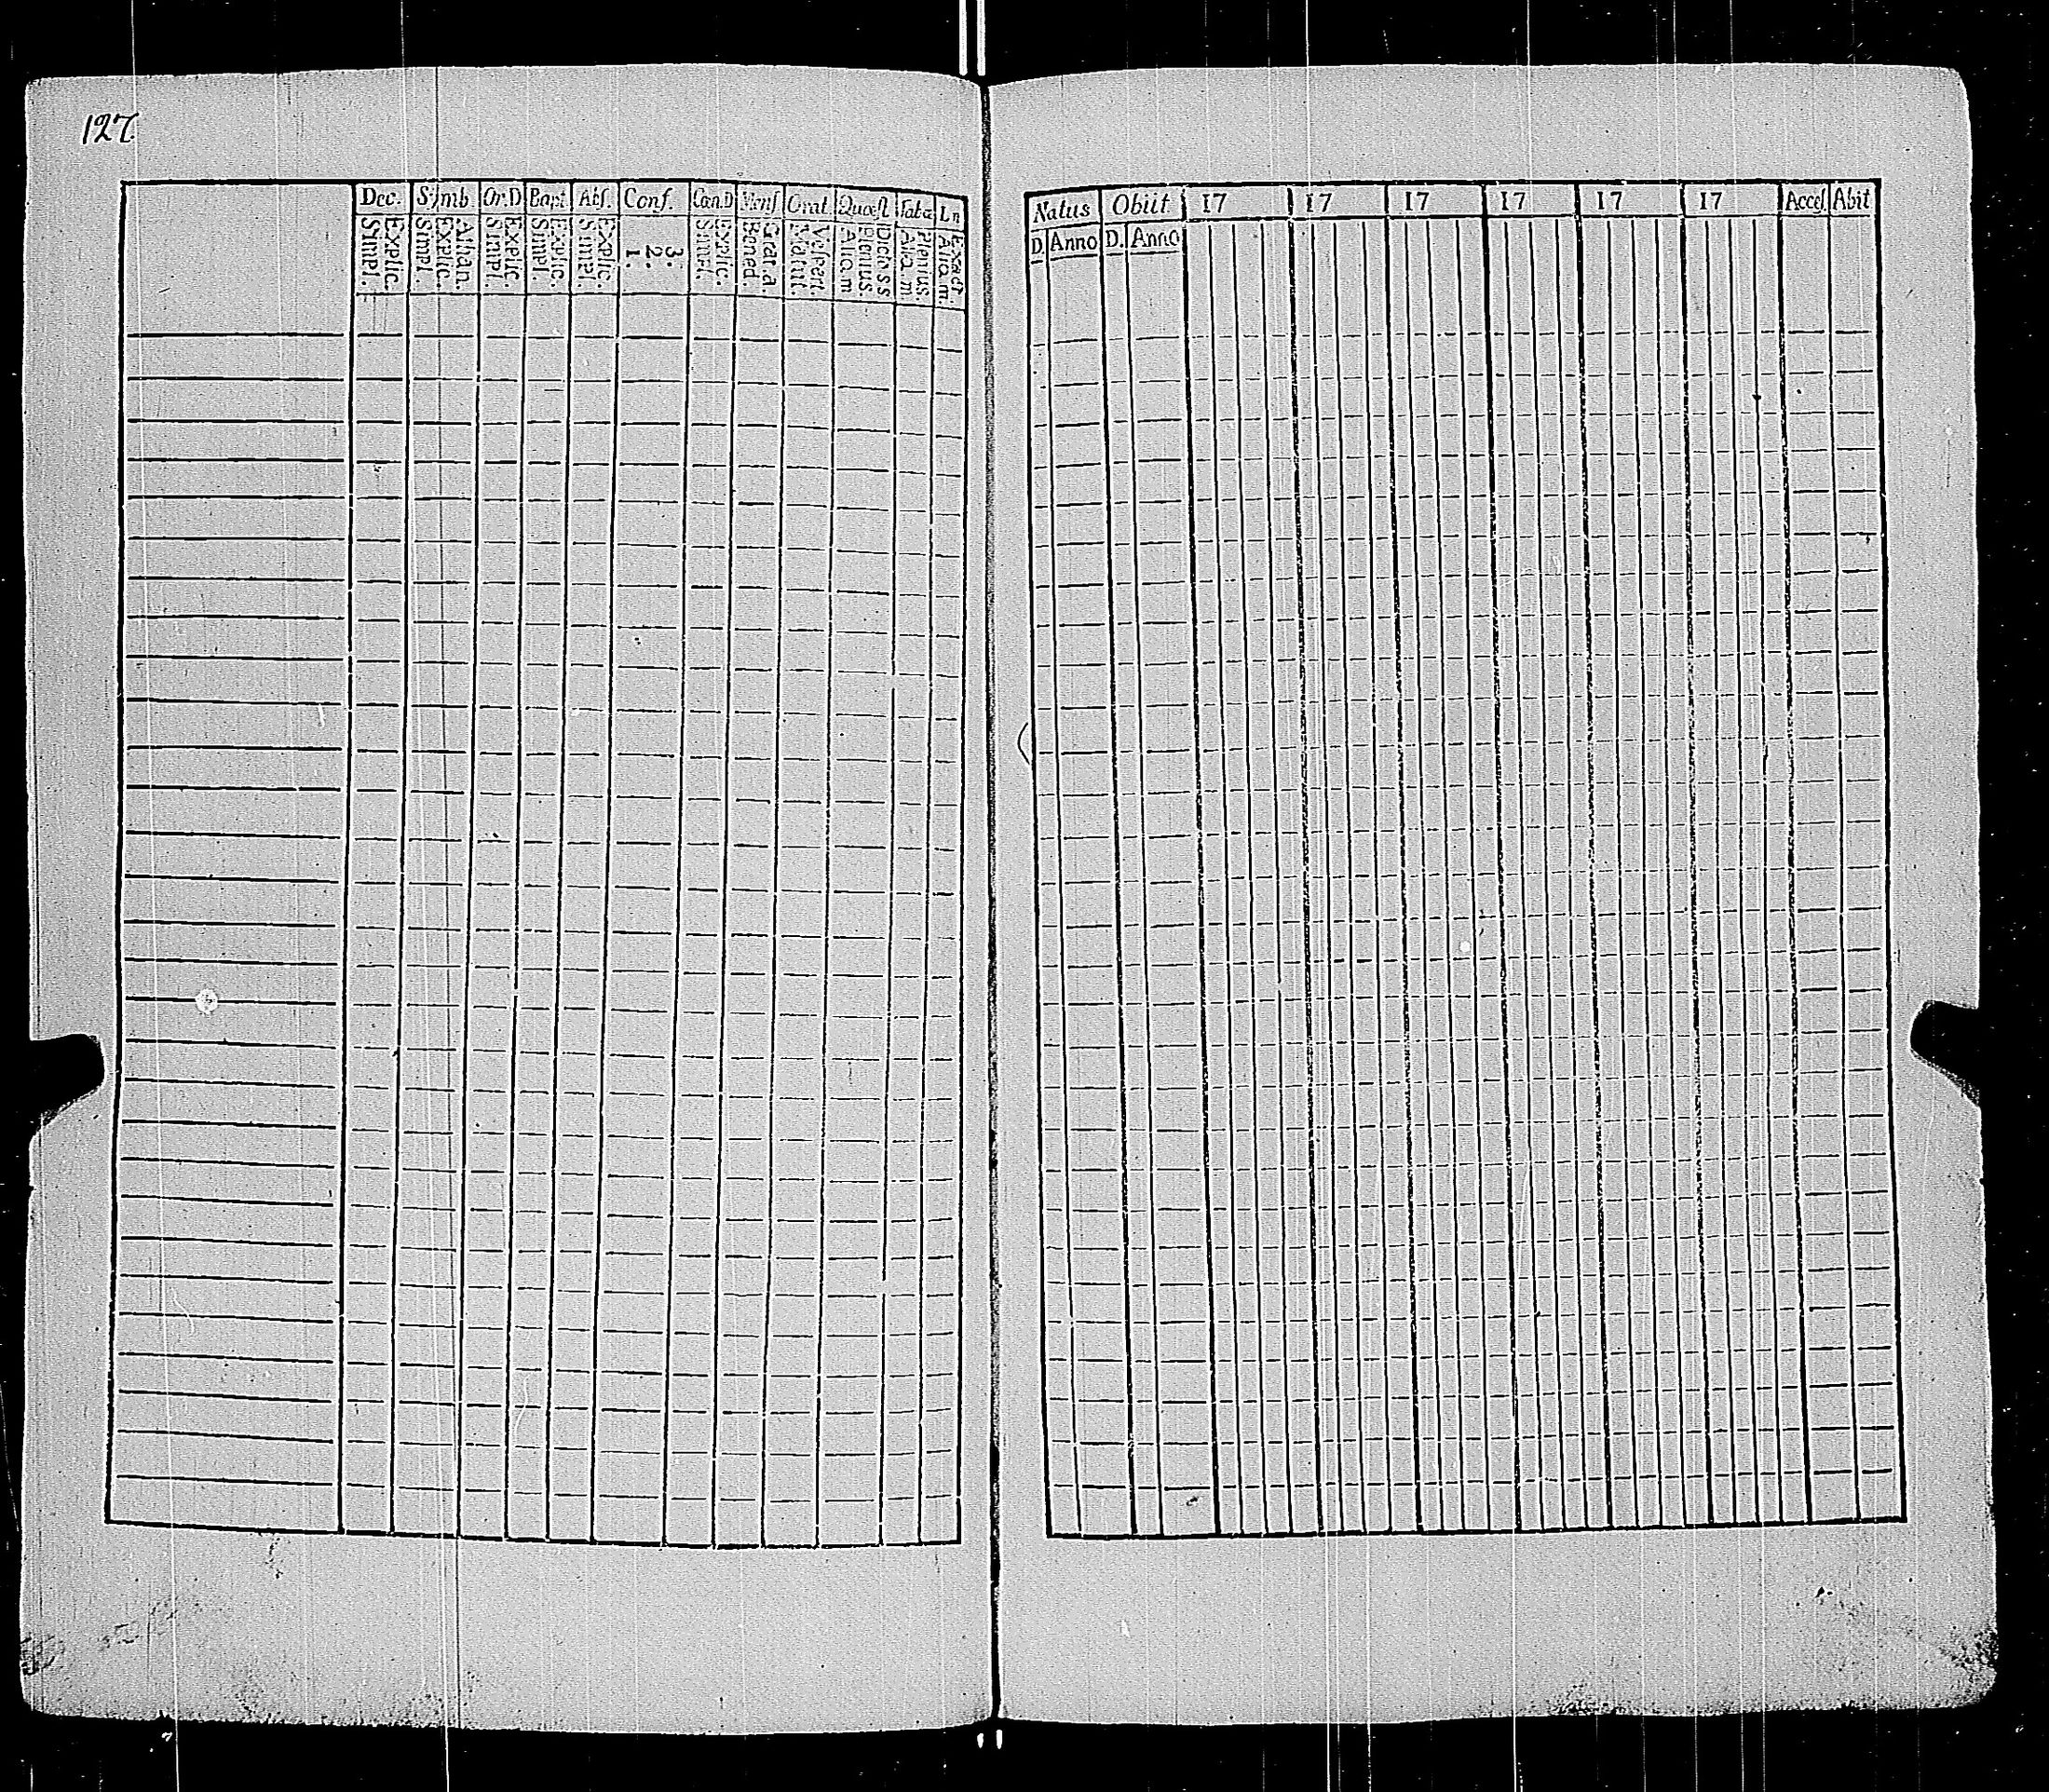 127.
Dec. Symb. Or.D Bapt. Abs. Conf. Cœn.D Mens Orat. Quæst Taba Ln
Simpl. Explic. Simpl. Explic. Athan. Simpl. Explic. Simpl. Explic. Simpl. Explic. 1. 2. 3. Simpl. Explic. Bened. Grat.a Matut. Vespert. Aliq.m Plenius. Dict.s.s Aliq.m Plenius. Aliq.m Exact.
Natus Obiit 17 17 17 17 17 17 Accес. Abit
D. Anno D. Anno